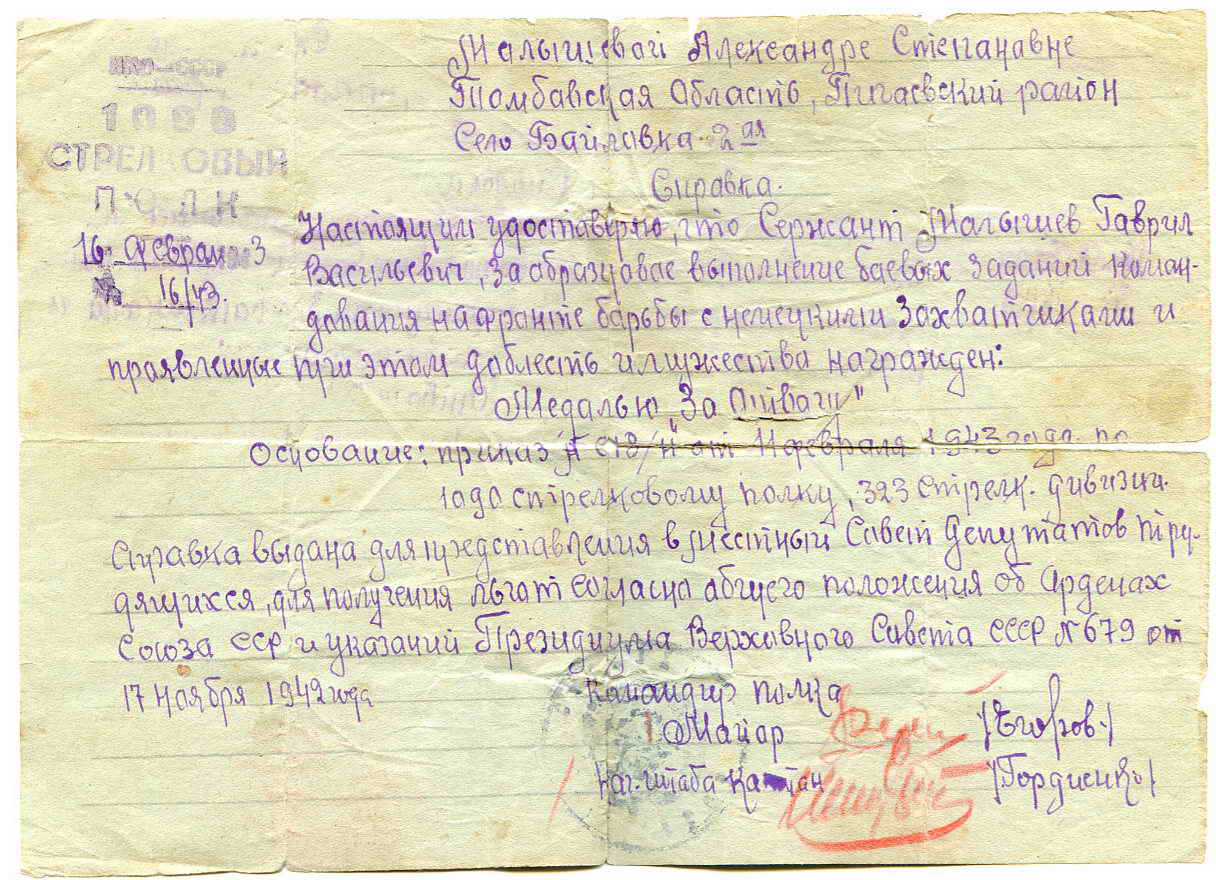 НКО-СССР
1090
СТРЕЛКОВЫЙ
ПОЛК
16 Феврал 3
16/43.
Малышевай Александре Степанавне
Томбавская Область, Пичаевский район
Село Байловка 2ая
Справка.
Настоящим удоставеряю, что Сержант Малышев Гаврил
Васильевич, за абразцавае выполнение баевых заданий коман-
давания на фронте барьбы с немецкими захватчиками и
праявленные при этам даблесть и мужества награжден:
Медалью "За Атваги"
Основание: приказ № 018/н от 11 февраля 1943 года по
1090 стрелковому полку, 323 стрелк. дивизии.
Справка выдана для представления в местный Савет Депутатов тру-
дящихся, для получения льгот согласно абщего положения об Орденах
Союза ССР и указаний Президиума Верховного Савета СССР № 679 от
17 ноября 1942 года
Камандир полка
Майор /Егоров/
Нач. штаба Капитан /Гордиенко/